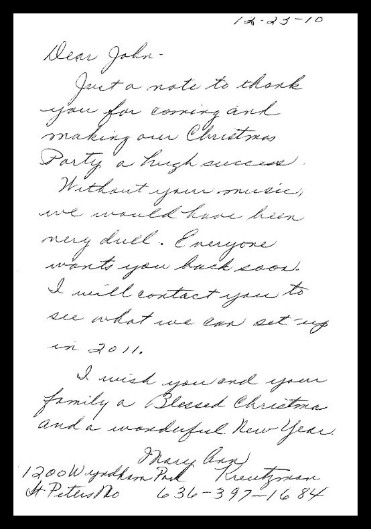 12-23-10
Dear John-
Just a note to thank
you for coming and
making our Christmas
Party a hugh success.
Without your music,
we would have been
very duel. Everyone
wants you back soon.
I will contact you to
see what we can set-up
in 2011.
I wish you and your
family a Blessed Christmas
and a wonderful New Year.
Mary Ann
1200 Wyndham Park Kreutzman
St Peters Mo 636-397-1684